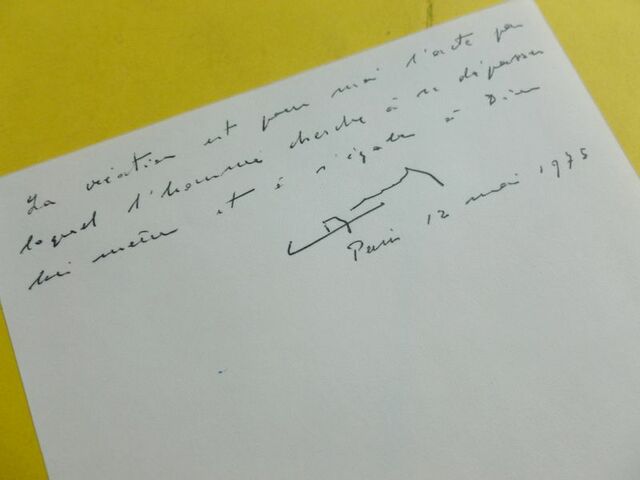 La création est pour moi l'acte par
lequel l'homme cherche à se dépasser
lui même et à s'égaler à Dieu
Paris 12 mai 1975